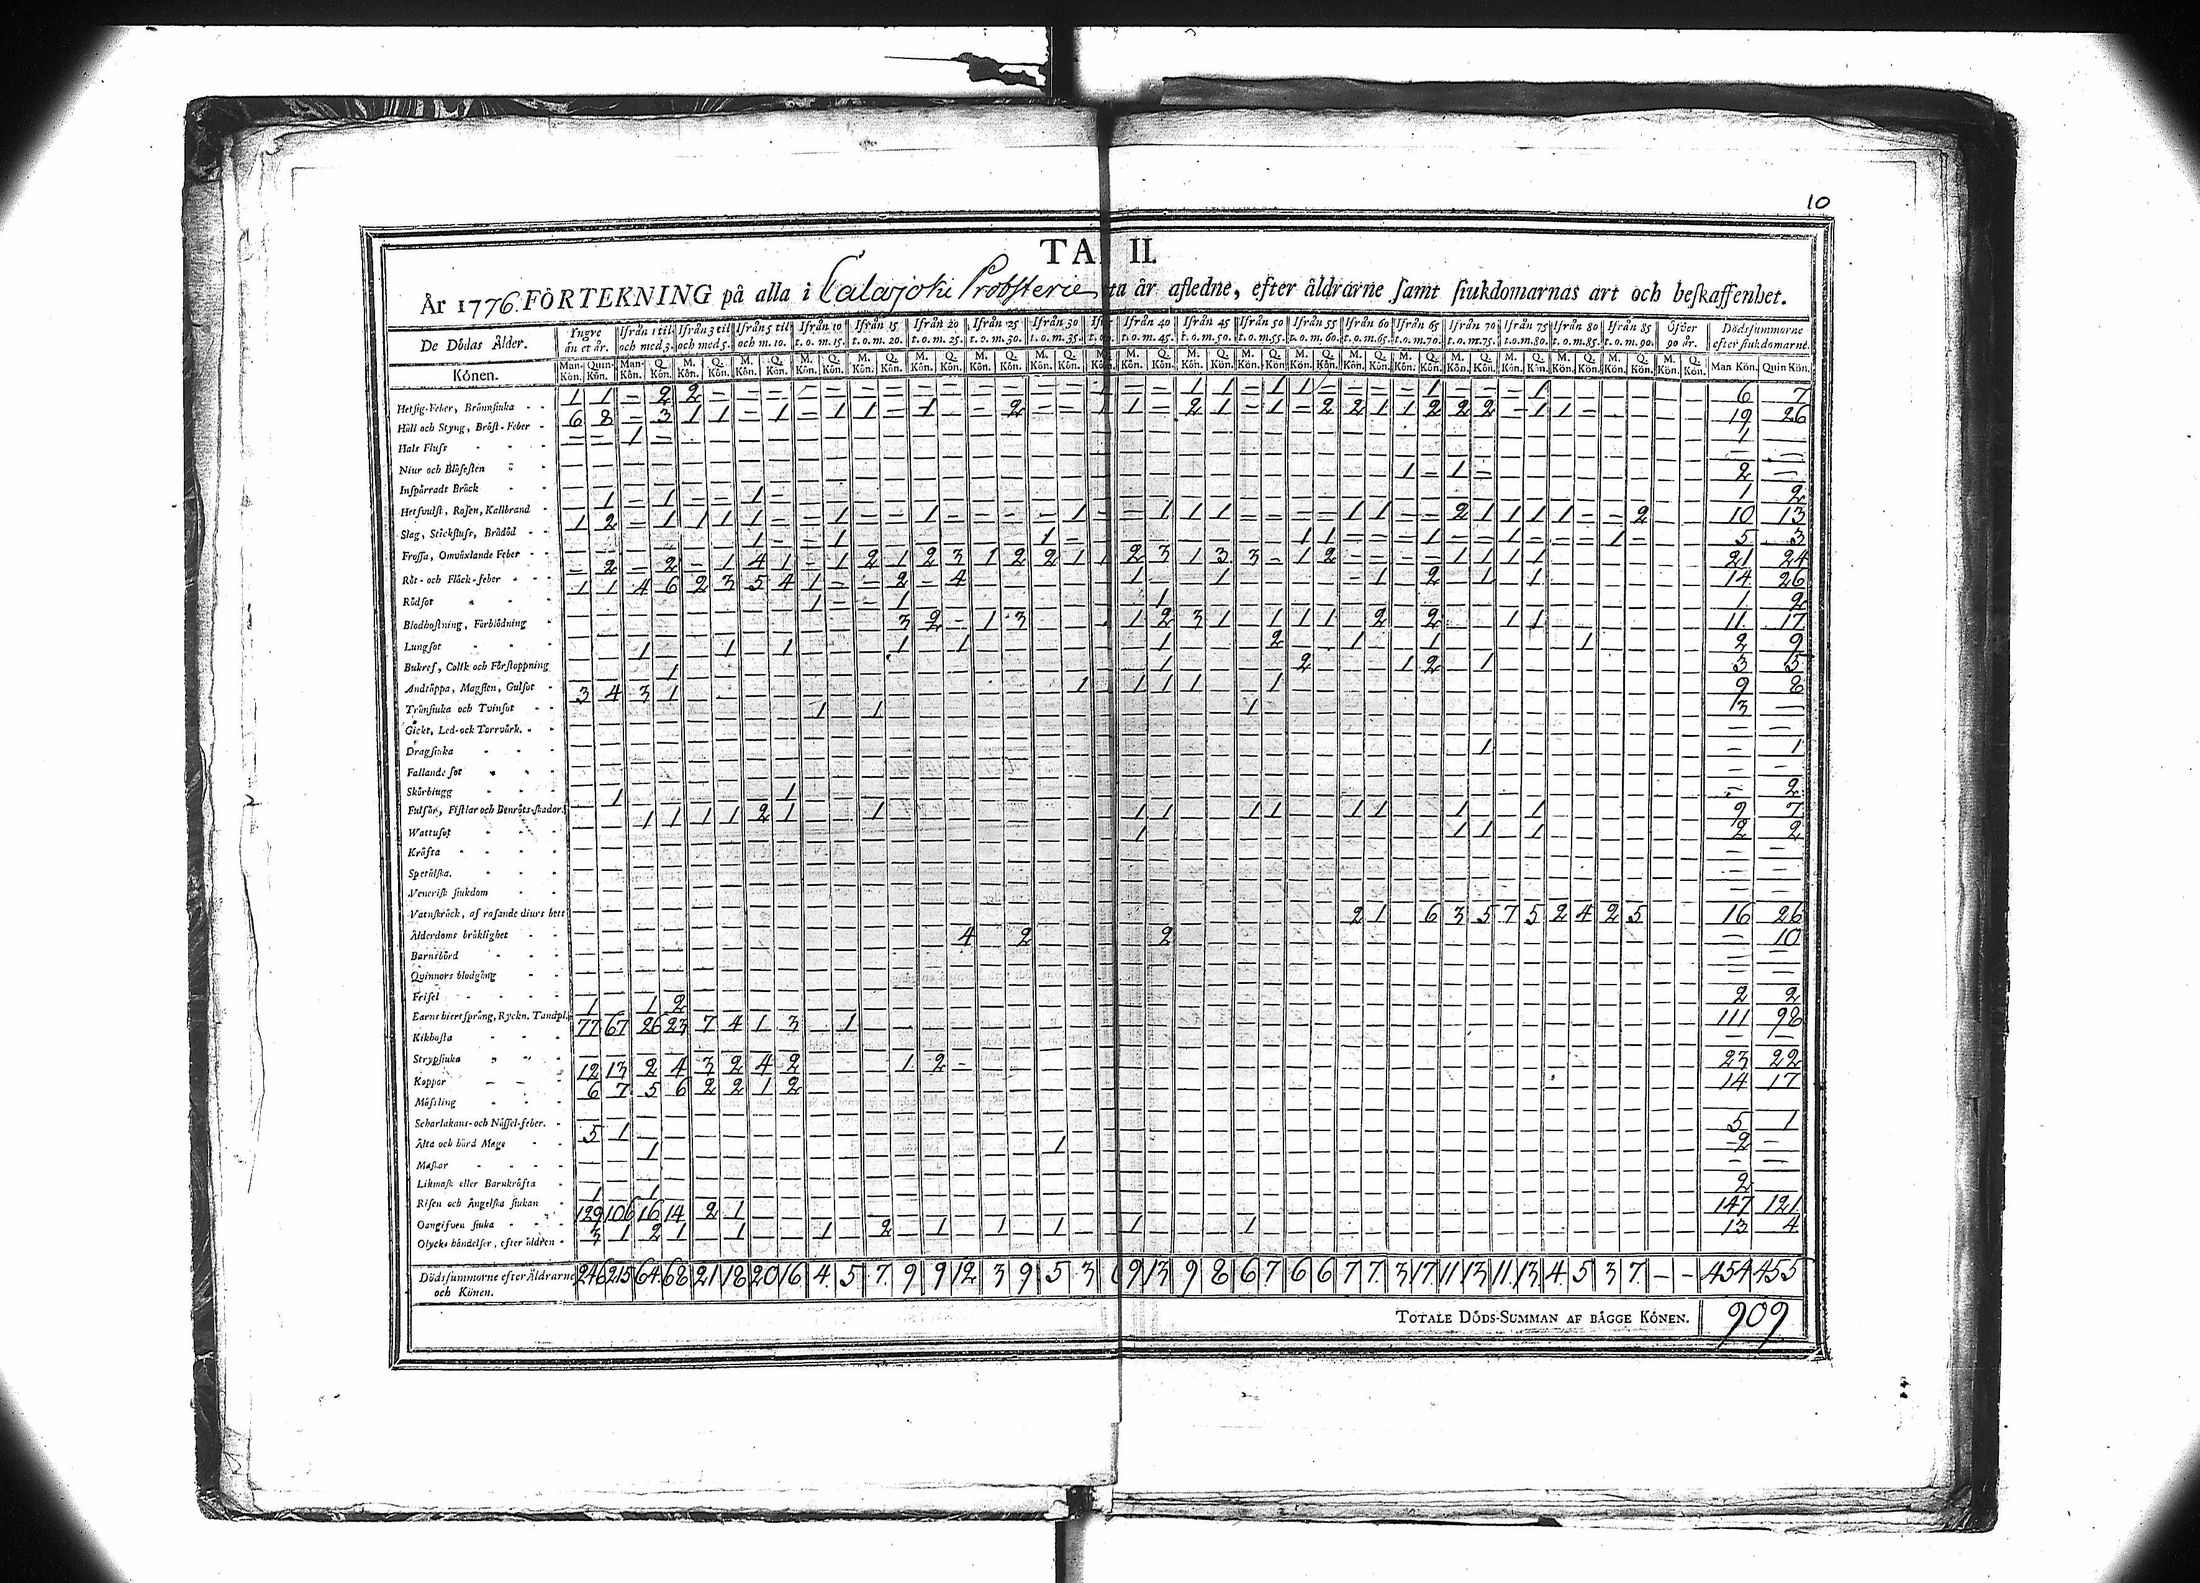 10
TA II.
År 1776 FÖRTEKNING på alla i Calajoki Probsterie ta år afledne, efter åldrarne samt siukdomarnas art och beskaffenhet.
De Dödas Ålder. Yngre än et år. Ifrån 1 til och med 3. Ifrån 3 til och med 5. Ifrån 5 til och m. 10. Ifrån 10 t. o. m. 15. Ifrån 15 t. o. m. 20. Ifrån 20 t. o. m. 25. Ifrån 25 t. o. m. 30. Ifrån 30 t. o. m. 35. Ifrån 40 t. o. m. 45. Ifrån 45 t. o. m. 50. Ifrån 50 t. o. m. 55. Ifrån 55 t. o. m. 60. Ifrån 60 t. o. m. 65. Ifrån 65 t. o. m. 70. Ifrån 70 t. o. m. 75. Ifrån 75 t. o. m. 80. Ifrån 80 t. o. m. 85. Ifrån 85 t. o. m. 90. Öfver 90 år. Dödssummorne efter siukdomarne.
Könen. Man-Kön. Quin-Kön. Man-Kön. Q. Kön. M. Kön. Q. Kön. Man Kön. Quin Kön.
Hetsig-Feber, Brännsiuka 1 1 2 2 6 7
Håll och Styng, Bröst-Feber 6 8 3 1 1 1 19 26
Hals Fluss 1 1
Niur och Blåsesten
Inspärradt Bråck 1 1 2
Hetsvulst, Rosen, Kallbrand 1 1 1 1 2
Slag, Stickfluss, Brådöd 1 2 1 1 1 1 10 13
Frossa, Omväxlande Feber 5 3
Röt- och Fläck-feber 2 2 1 4 1 1 2 1 2 3 1 2 2 1 21 24
Rödsot 1 1 4 6 2 3 5 4 1 2 4 14 26
Blodhostning, Förblödning 1 1 1 1 2
Lungsot 3 2 1 3 11 17
Bukref, Colik och Förstoppning 1 1 1 1 1 2 9
Andtäppa, Magsten, Gulsot 1 3 5
Trånsiuka och Tvinsot 3 4 3 1 9 8
Gickt, Led- ock Torrvärk. 1 1 1 3
Dragsiuka 1 1
Fallande sot
Skörbiugg 1 1 2
Fulsår, Fistlar och Benröts-skador. 1 1 1 1 2 1 1 9 7
Wattusot 1 1 1 1 2 2
Kräfta
Spetälska.
Venerisk siukdom
Vatuskräck, af rasande diurs bett
Ålderdoms bräklighet 2 1 6 3 5 7 5 2 4 2 5 16 26
Barnsbörd 4 2 2 10
Quinnors blodgång
Frisel
Barns hiertsprång, Ryckn. Tandpl. 1 1 2 2 2
Kikhosta 77 67 26 23 7 4 1 3 1 111 98
Strypsiuka
Koppor 12 13 2 4 3 2 4 2 1 2 23 22
Mässling 6 7 5 6 2 2 1 2 14 17
Scharlakans- och Nässel-feber.
Älta och hård Mage 5 1 5 1
Maskar 1 1 2
Likmask eller Barnkräfta
Risen och Ängelska siukan 1 1 2
Oangifven siuka 129 106 16 14 2 1 147 121
Olycks händelser, efter åldren 3 1 2 1 1 1 2 1 1 1 1 1 13 4
Dödssummorne efter Åldrarne och Könen. 246 215 64 68 21 18 20 16 4 5 7 9 9 12 3 9 5 3 9 13 9 8 6 7 6 6 7 7 3 17 11 13 11 13 4 5 3 7 454 455
TOTALE DÖDS-SUMMAN AF BÄGGE KÖNEN. 909